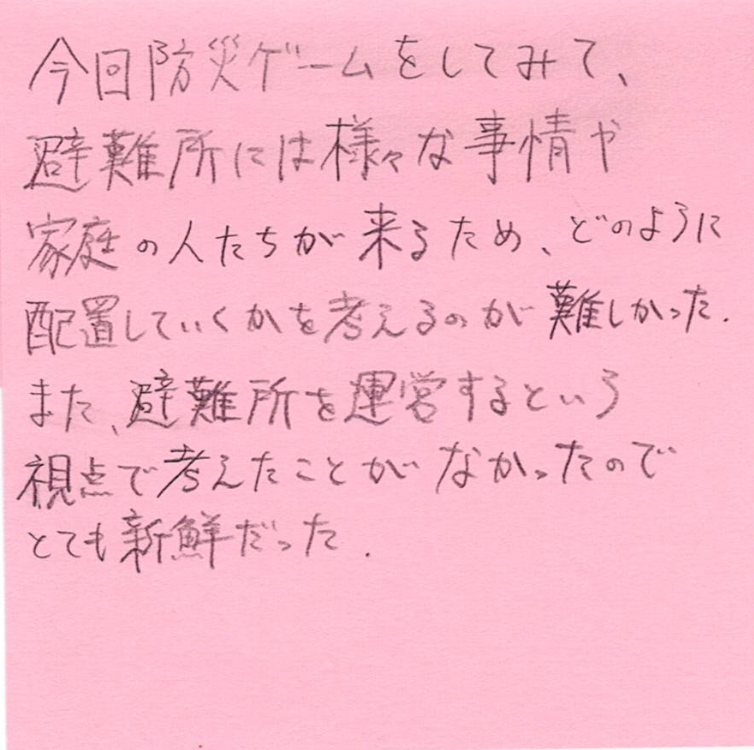 今回防災ゲームをしてみて、
避難所には様々な事情や
家庭の人たちが来るため、どのように
配置していくかを考えるのが難しかった.
また、避難所を運営するという
視点で考えたことがなかったので
とても新鮮だった.